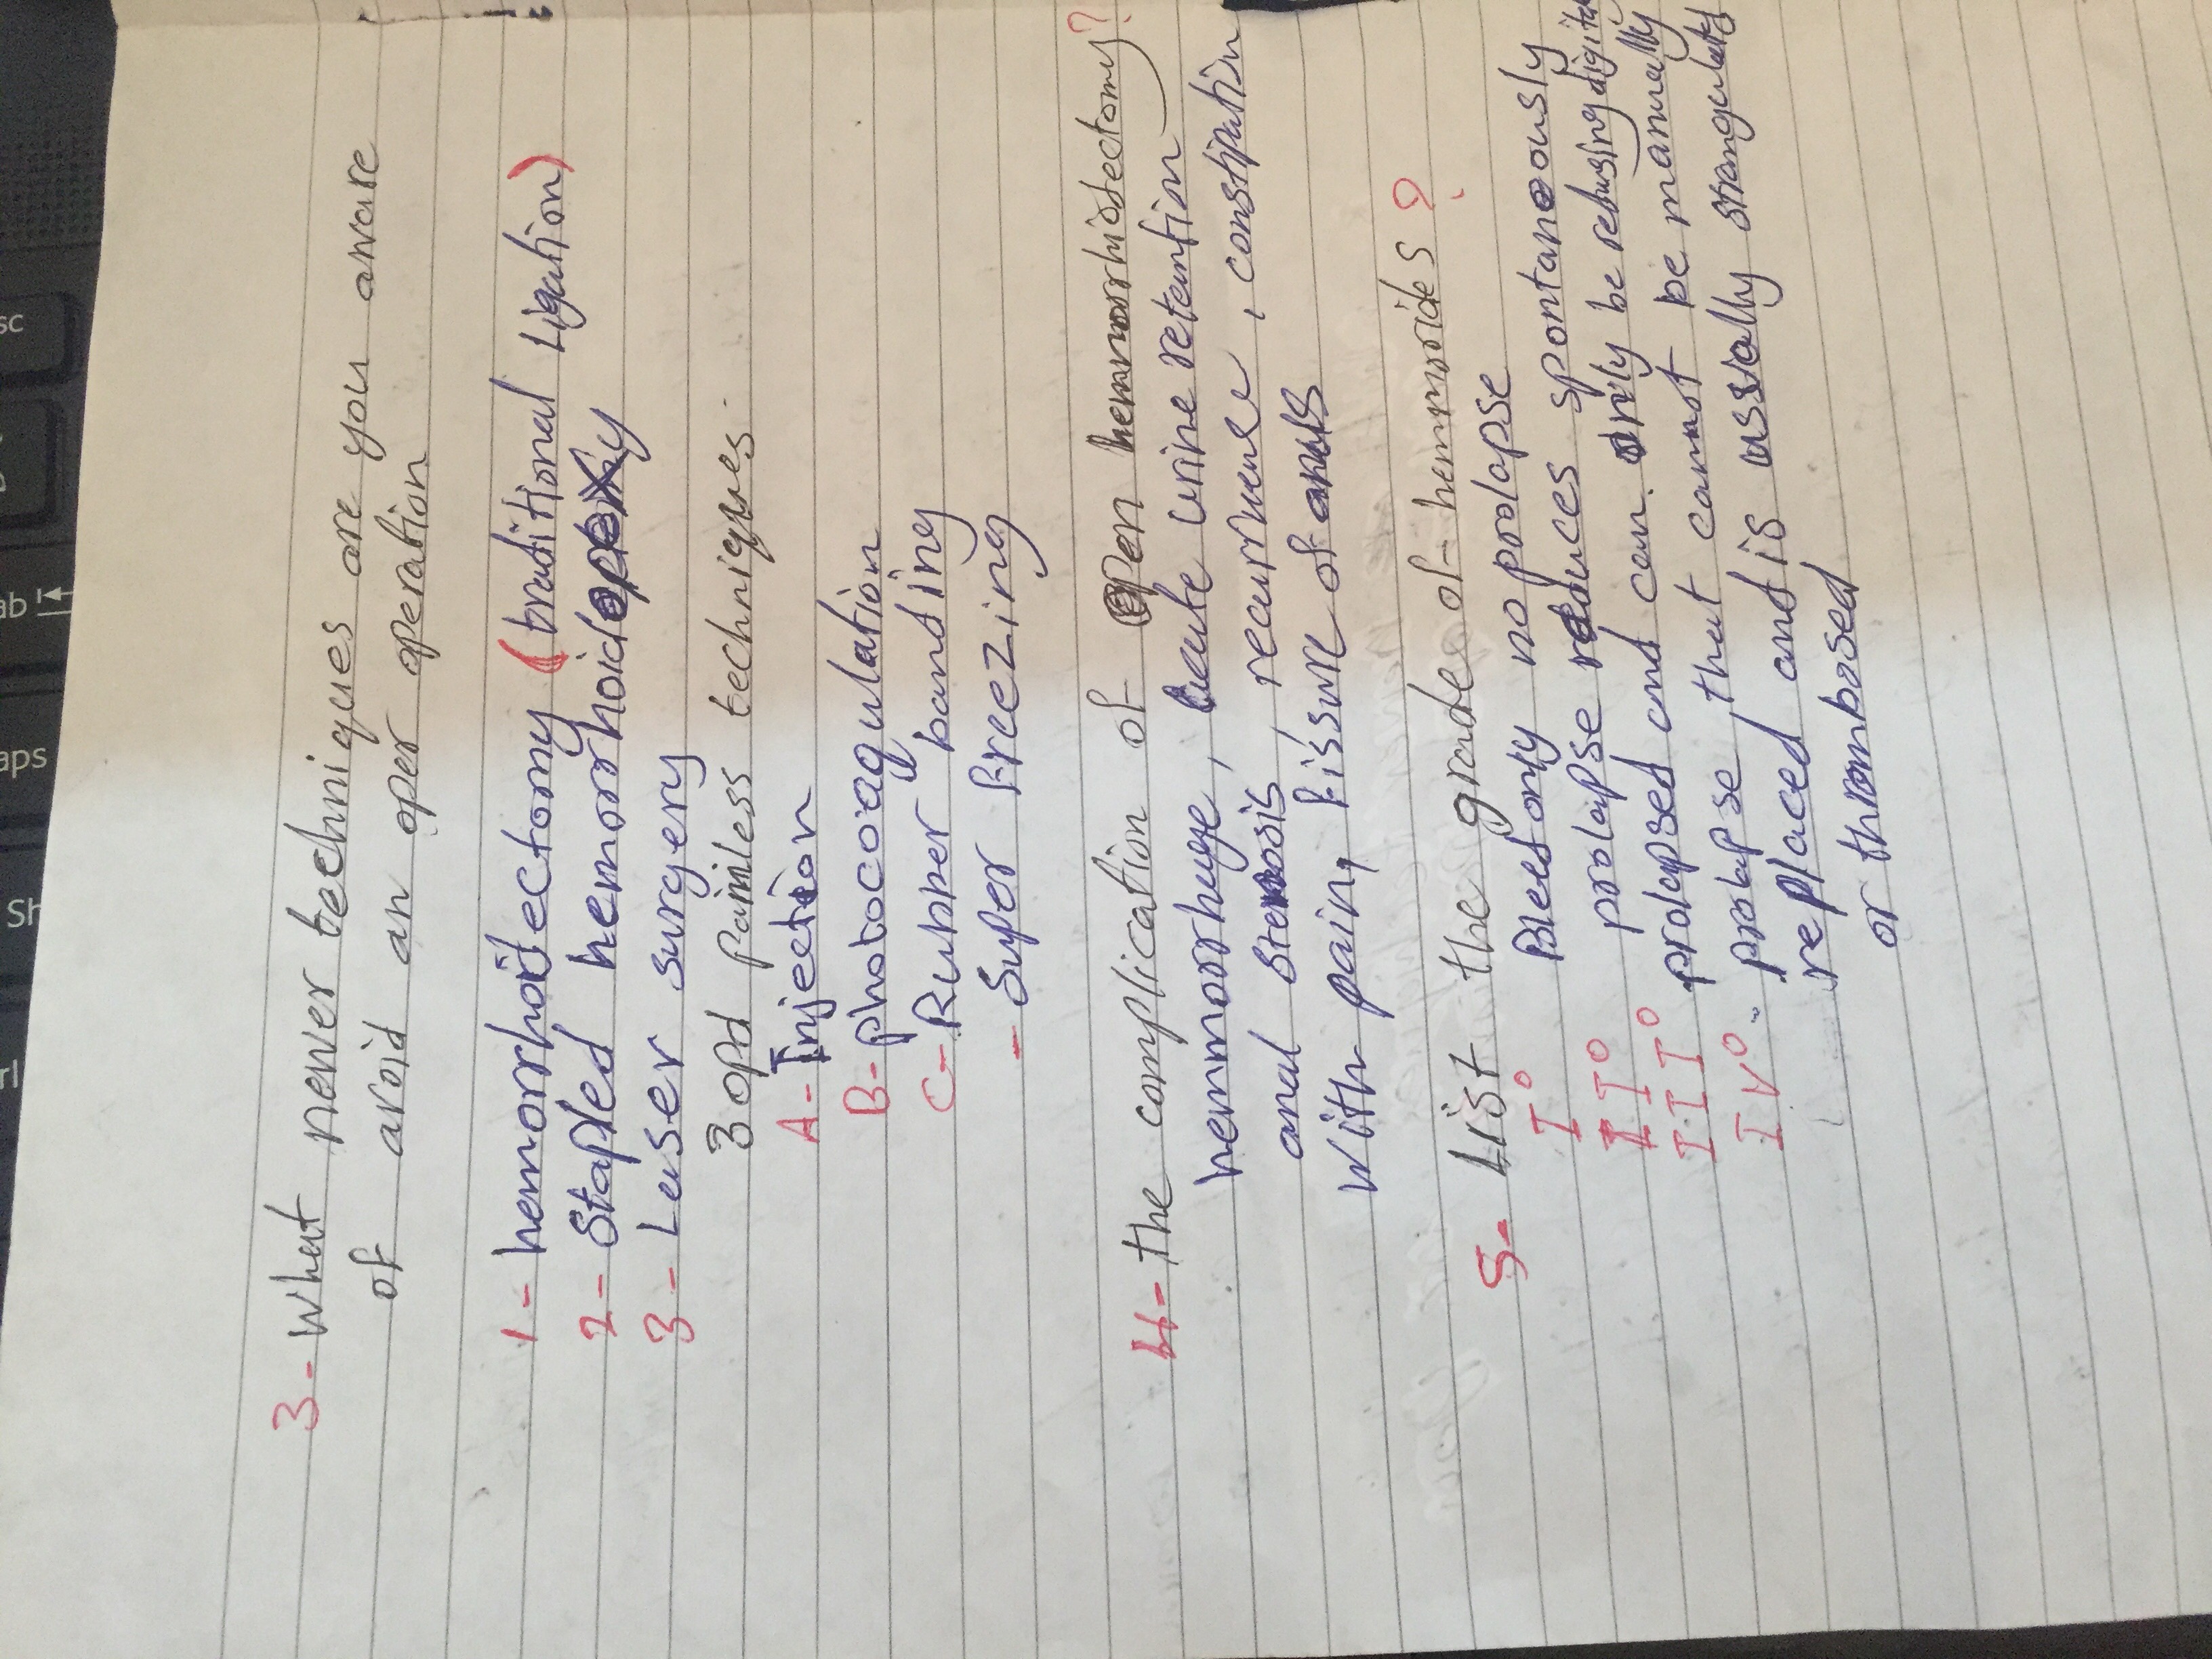 3- What newer techniques are you aware
of avoid an oper operation
1- hemorrhoidectomy (traditional Ligation)
2- Stapled hemorrhoidopexy
3- Laser surgery
3 opd painless techniques
A- Injection
B- photocoagulation
C- Rubber banding
- Super freezing
4- the complication of open hemmorrhiodectomy?
hemmorrhage, acute urine retention
anal stenosis, recurrence, constipation
with pain, fissure of anals
5- List the grade of hemmroides?
I° Bleed only no prolapse
II° prolapse reduces spontaneously
III° prolapsed and can only be rebusing digital
IV° prolapse, that cannot be manually
replaced and is ussally strangulated
or thrombosed
sc
ab
aps
Sh
rl